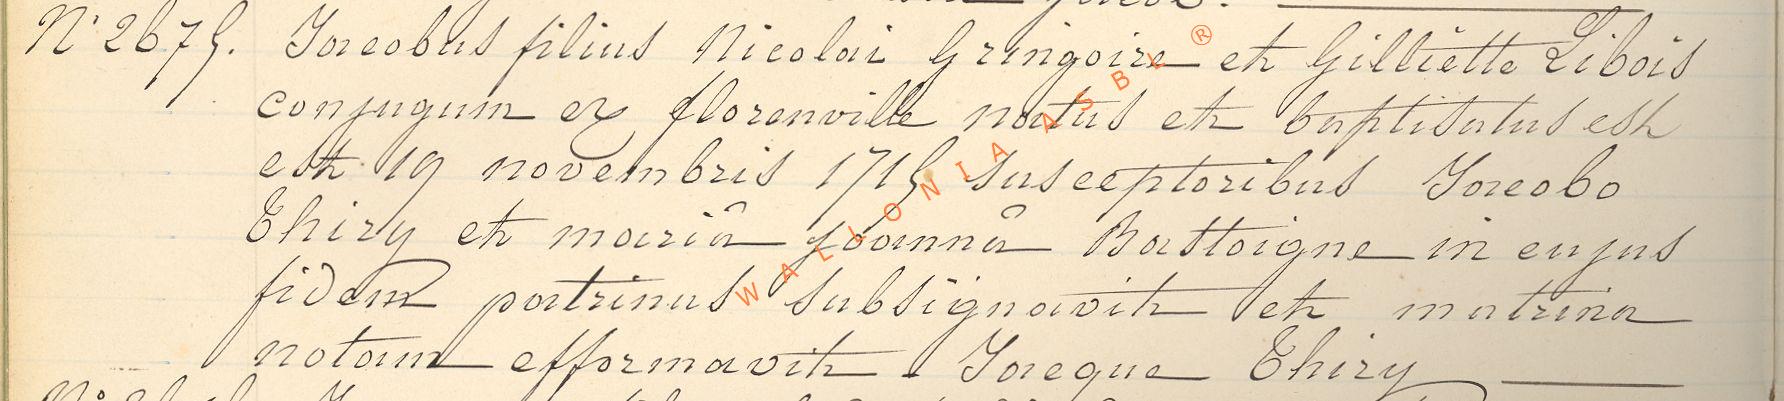 N° 2675. Jacobus filius Nicolai Gringoire et Gilliette Libois
conjugum ex florenville natus et baptisatus est
est 19 novembris 1715 susceptoribus Jacobo
Thiry et mariâ joannâ Bastoigne in cujus
fidem patrinus subsignavit et matrina
notam efformavit. Jacque Thiry
WALLONIA ASBL ®